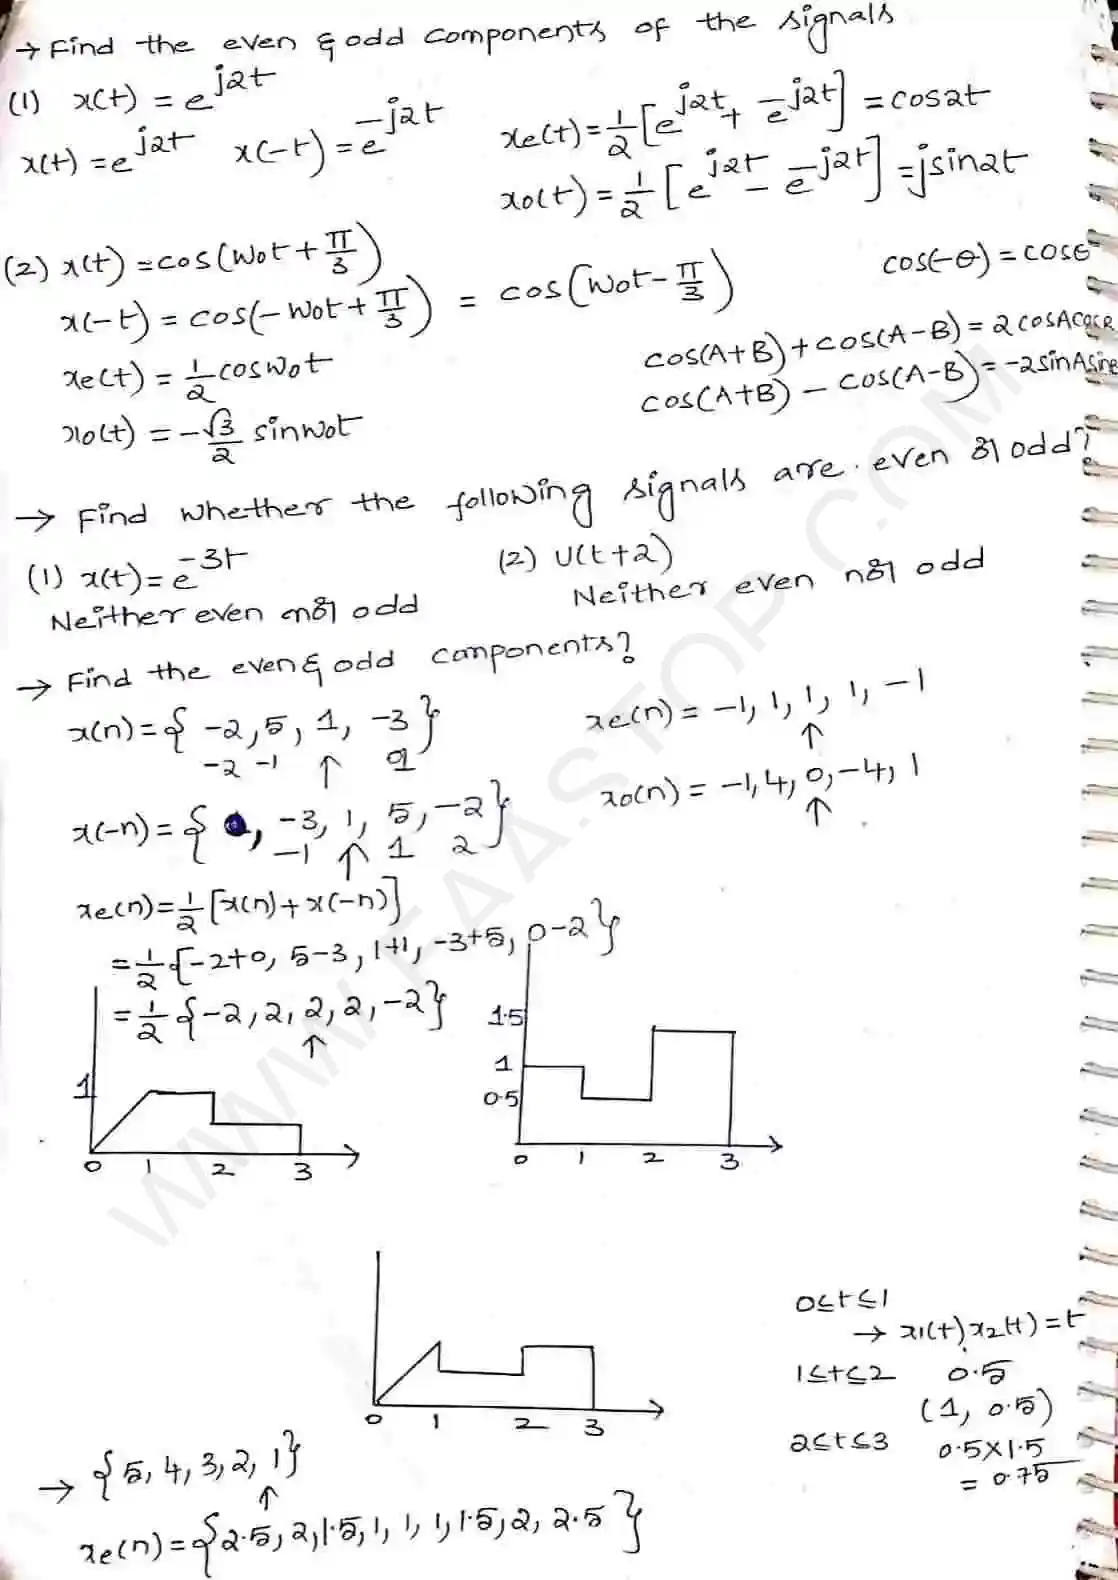 → Find the even & odd components of the signals
(1) x(t) = e^{j2t}
x(t) = e^{j2t} x(-t) = e^{-j2t} xe(t) = 1/2 [e^{j2t} + e^{-j2t}] = cos2t
xo(t) = 1/2 [e^{j2t} - e^{-j2t}] = jsin2t
(2) x(t) = cos(wot + π/3)
x(-t) = cos(-wot + π/3) = cos(wot - π/3) cos(-θ) = cosθ
xe(t) = 1/2 coswot cos(A+B) + cos(A-B) = 2 cosAcosB
xo(t) = -√3/2 sinwot cos(A+B) - cos(A-B) = -2sinAsinB
→ Find whether the following signals are even or odd?
(1) x(t) = e^{-3t} (2) U(t+2)
Neither even nor odd Neither even nor odd
→ Find the even & odd components?
x(n) = { -2, 5, 1, -3 } xe(n) = -1, 1, 1, 1, -1
-2 -1 ↑ ↑
xo(n) = -1, 4, 0, -4, 1
x(-n) = { , -3, 1, 5, -2 } ↑
-1 ↑ 1 2
xe(n) = 1/2 [x(n) + x(-n)]
= 1/2 { -2+0, 5-3, 1+1, -3+5, 0-2 }
= 1/2 { -2, 2, 2, 2, -2 }
↑
1
0 1 2 3
1.5
1
0.5
0 1 2 3
0 1 2 3
0≤t≤1
→ x1(t) x2(t) = t
1≤t≤2 0.5
(1, 0.5)
2≤t≤3 0.5×1.5
= 0.75
→ {5, 4, 3, 2, 1}
↑
xe(n) = {2.5, 2, 1.5, 1, 1, 1, 1.5, 2, 2.5}
WWW.FAASTOP.COM